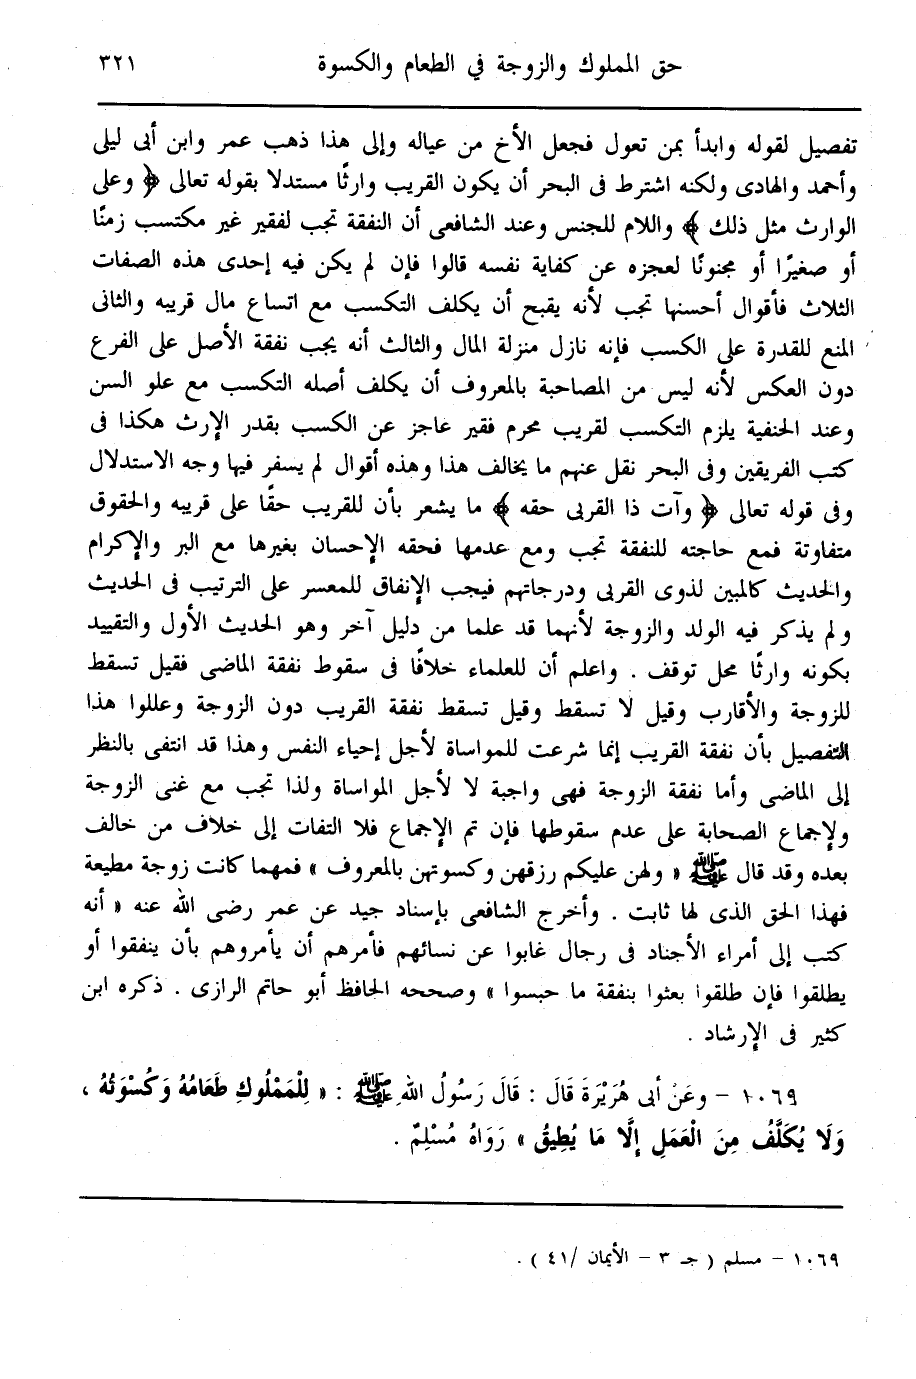 حق المملوك والزوجة في الطعام والكسوة ٣٢١
تفصيل لقوله وابدأ بمن تعول فجعل الأخ من عياله وإلى هذا ذهب عمر وابن أبى ليلى
وأحمد والهادى ولكنه اشترط فى البحر أن يكون القريب وارثًا مستدلا بقوله تعالى ﴿ وعلى
الوارث مثل ذلك ﴾ واللام للجنس وعند الشافعى أن النفقة تجب لفقير غير مكتسب زمنًا
أو صغيرًا أو مجنونًا لعجزه عن كفاية نفسه قالوا فإن لم يكن فيه إحدى هذه الصفات
الثلاث فأقوال أحسنها تجب لأنه يقبح أن يكلف التكسب مع اتساع مال قريبه والثانى
المنع للقدرة على الكسب فإنه نازل منزلة المال والثالث أنه يجب نفقة الأصل على الفرع
دون العكس لأنه ليس من المصاحبة بالمعروف أن يكلف أصله التكسب مع علو السن
وعند الحنفية يلزم التكسب لقريب محرم فقير عاجز عن الكسب بقدر الإرث هكذا فى
كتب الفريقين وفى البحر نقل عنهم ما يخالف هذا وهذه أقوال لم يسفر فيها وجه الاستدلال
وفى قوله تعالى ﴿ وآت ذا القربى حقه ﴾ ما يشعر بأن للقريب حقًا على قريبه والحقوق
متفاوتة فمع حاجته للنفقة تجب ومع عدمها فحقه الإحسان بغيرها مع البر والإكرام
والحديث كالمبين لذوى القربى ودرجاتهم فيجب الإنفاق للمعسر على الترتيب فى الحديث
ولم يذكر فيه الولد والزوجة لأنهما قد علما من دليل آخر وهو الحديث الأول والتقييد
بكونه وارثًا محل توقف . واعلم أن للعلماء خلافًا فى سقوط نفقة الماضى فقيل تسقط
للزوجة والأقارب وقيل لا تسقط وقيل تسقط نفقة القريب دون الزوجة وعللوا هذا
التفصيل بأن نفقة القريب إنما شرعت للمواساة لأجل إحياء النفس وهذا قد انتفى بالنظر
إلى الماضى وأما نفقة الزوجة فهى واجبة لا لأجل المواساة ولذا تجب مع غنى الزوجة
ولإجماع الصحابة على عدم سقوطها فإن تم الإجماع فلا التفات إلى خلاف من خالف
بعده وقد قال ﷺ « ولهن عليكم رزقهن وكسوتهن بالمعروف » فمهما كانت زوجة مطيعة
فهذا الحق الذى لها ثابت . وأخرج الشافعى بإسناد جيد عن عمر رضى الله عنه « أنه
كتب إلى أمراء الأجناد فى رجال غابوا عن نسائهم فأمرهم أن يأمروهم بأن ينفقوا أو
يطلقوا فإن طلقوا بعثوا بنفقة ما حبسوا » وصححه الحافظ أبو حاتم الرازى . ذكره ابن
كثير فى الإرشاد .
١٠٦٩ – وعَنْ أبى هُرَيْرَةَ قَالَ : قَالَ رَسُولُ اللهِ ﷺ : « لِلْمَمْلُوكِ طَعَامُهُ وَكُسْوَتُهُ ،
وَلَا يُكَلَّفُ مِنَ الْعَمَلِ إِلَّا مَا يُطِيقُ » رَوَاهُ مُسْلِمٌ .
١٠٦٩ – مسلم ( جـ ٣ – الأيمان /٤١ ) .